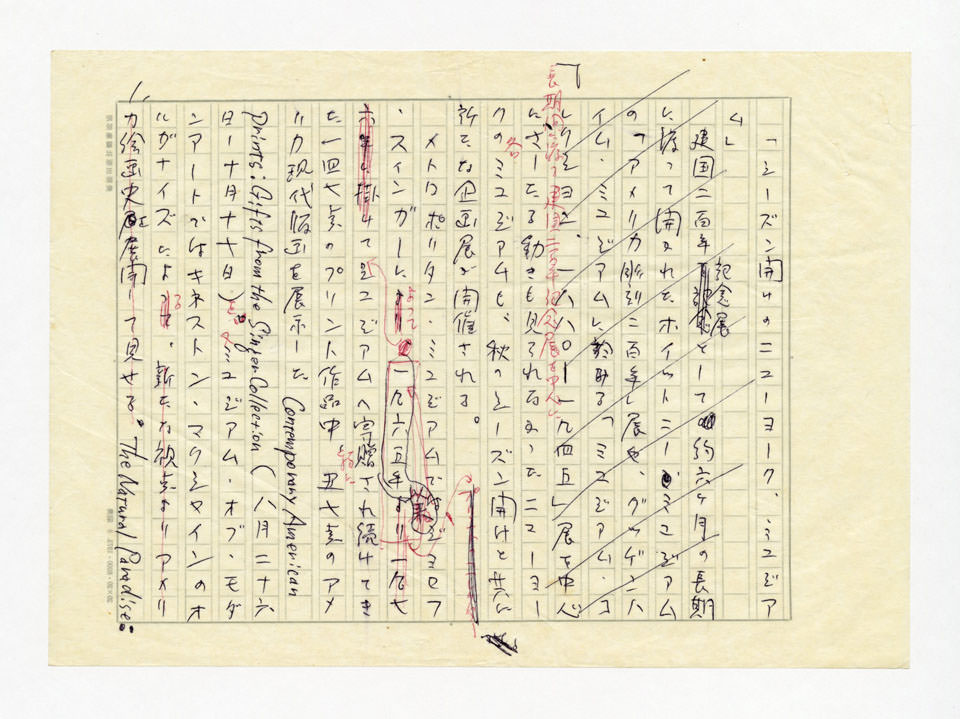 「シーズン開けのニューヨーク、ミュジア
ム」
建国二百年記念展として約六ヶ月の長期
に渡って開かれたホイットニー・ミュジアム
の「アメリカ彫刻二百年」展や、グッゲンハ
イム・ミュジアムに於ける「ミュジアム・コ
レクション、一八八〇ー一九四五」展を中心
長期間に渡る建国二百年記念展を中心に
にさしたる動きも見られなかったニューヨー
クの各ミュジアムも、秋のシーズン開けと共に
新たな企画展が開催される。
メトロポリタン・ミュジアムではジョセフ
・スインガーによって一九六五年より一九七
六年に掛けて同ミュジアムへ寄贈され続けてき
た一四七点のプリント作品中 五七点のアメ
リカ現代版画を展示した Contemporary American
Prints: Gifts from the Singer Collection (八月二十六
日ー十月十七日)
ミュジアム・オブ・モダ
ンアートではキネストン・マクシャインのオ
ルガナイズによる 新たな視点よりアメリ
カ絵画史を展開して見せる。The Natural Paradise: